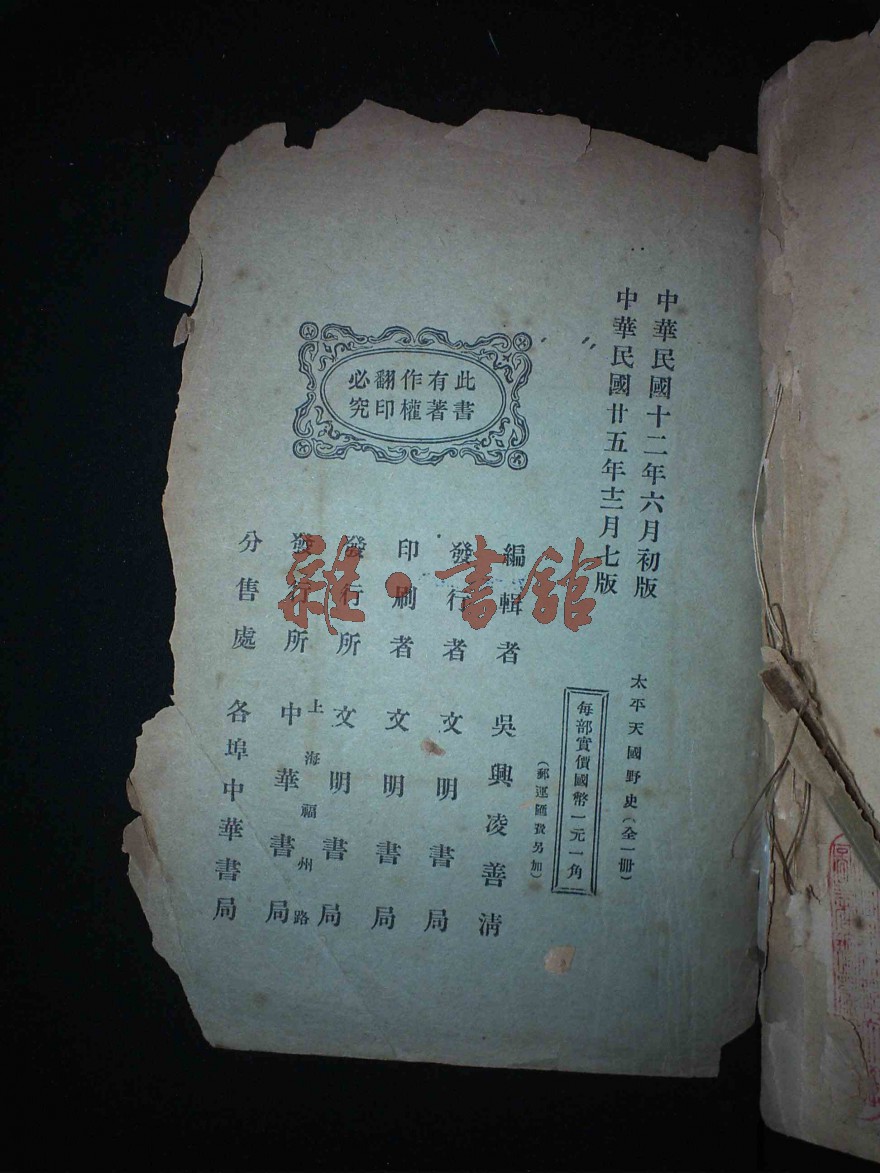 中華民國十二年六月初版
中華民國廿五年十二月七版
太平天國野史(全一冊)
每部實價國幣一元一角
(郵運匯費另加)
此書有著作權翻印必究
編輯者 吳興凌善清
發行者 文明書局
印刷者 文明書局
發行所 文明書局
上海福州路
發行所 中華書局
分售處 各埠中華書局
雜·書館